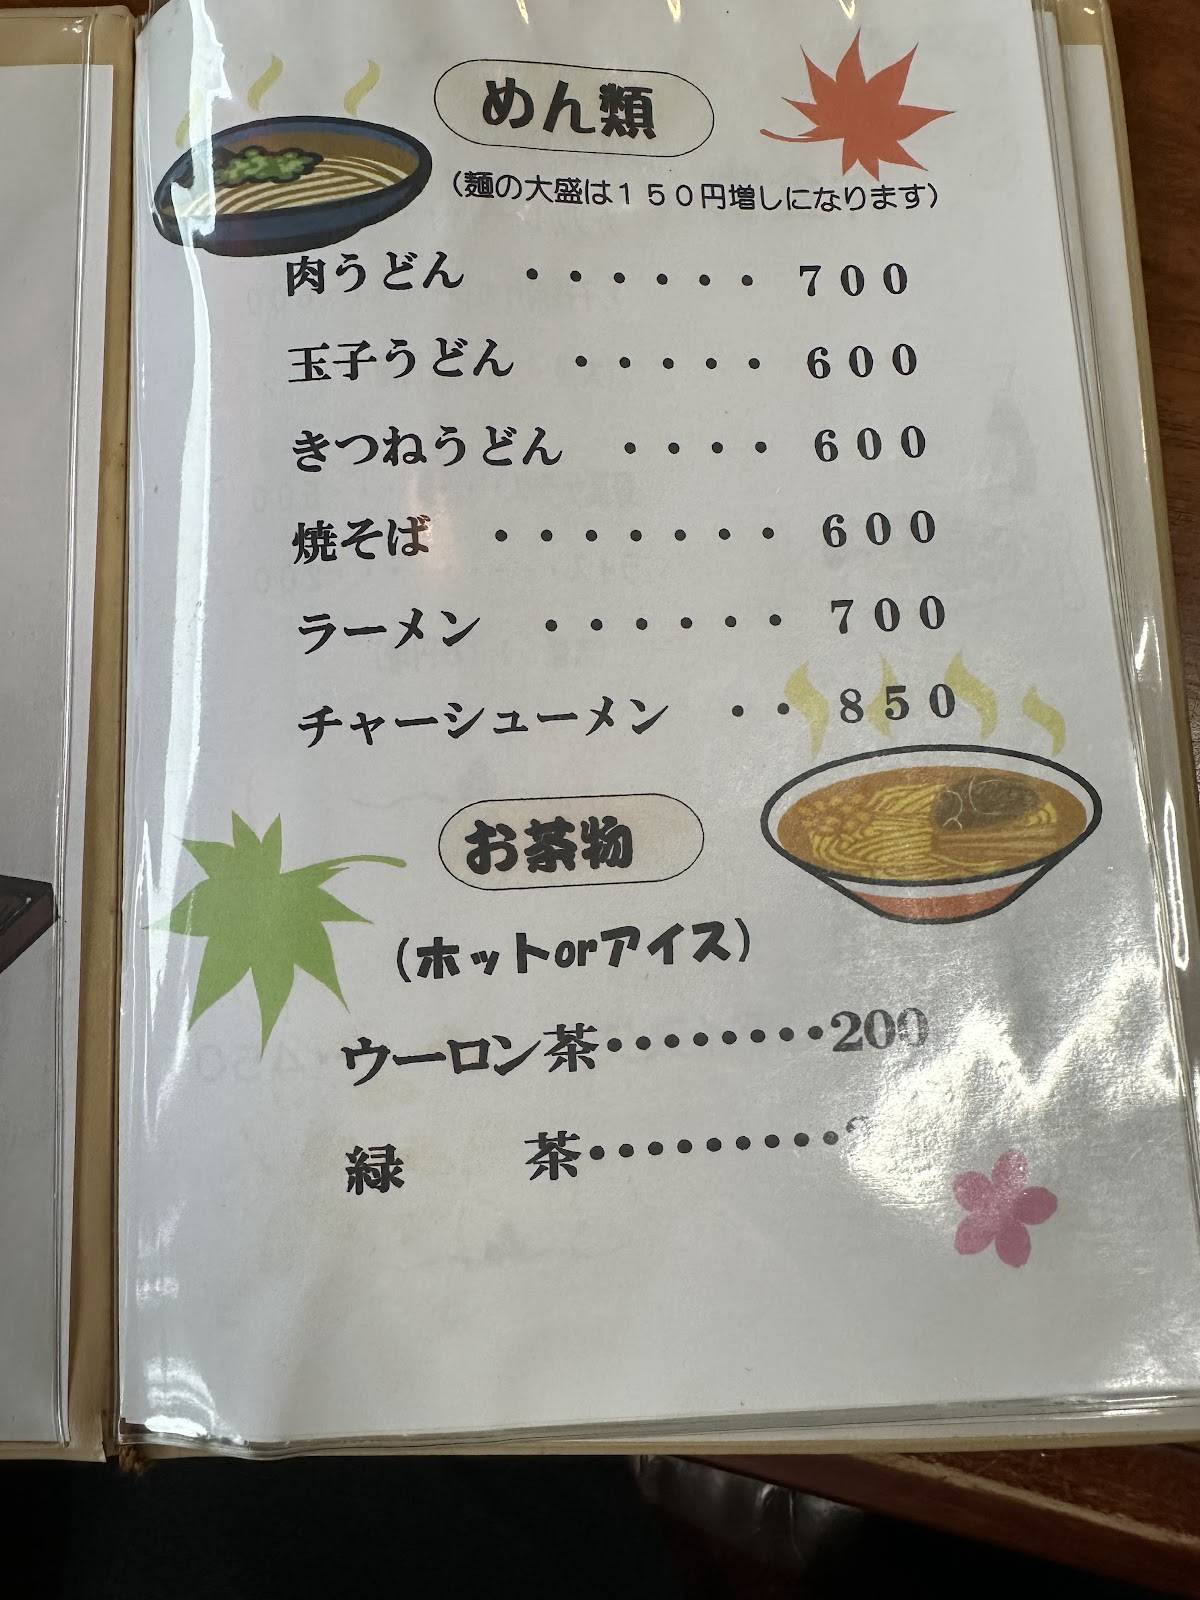 めん類
（麺の大盛は１５０円増しになります）
肉うどん ・・・・・・ ７００
玉子うどん ・・・・・ ６００
きつねうどん ・・・・ ６００
焼そば ・・・・・・・ ６００
ラーメン ・・・・・・ ７００
チャーシューメン ・・ ８５０
お茶物
（ホットorアイス）
ウーロン茶・・・・・・・・200
緑　　茶・・・・・・・・・